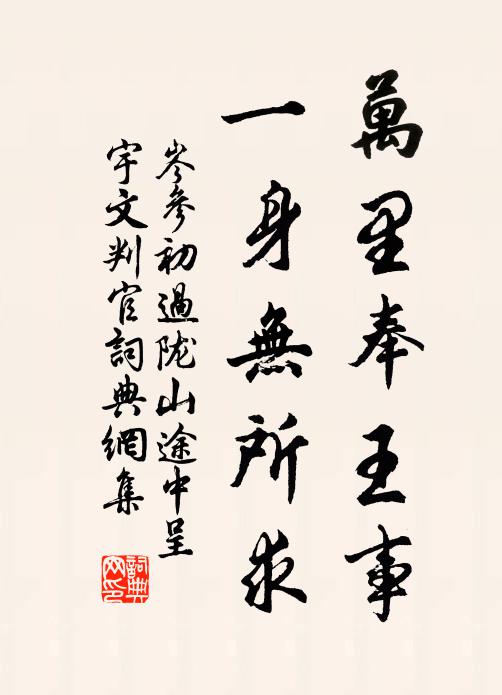 萬里奉王事
一身無所求
岑參初過陇山途中呈
宇文判官詞典網集
詞典网印